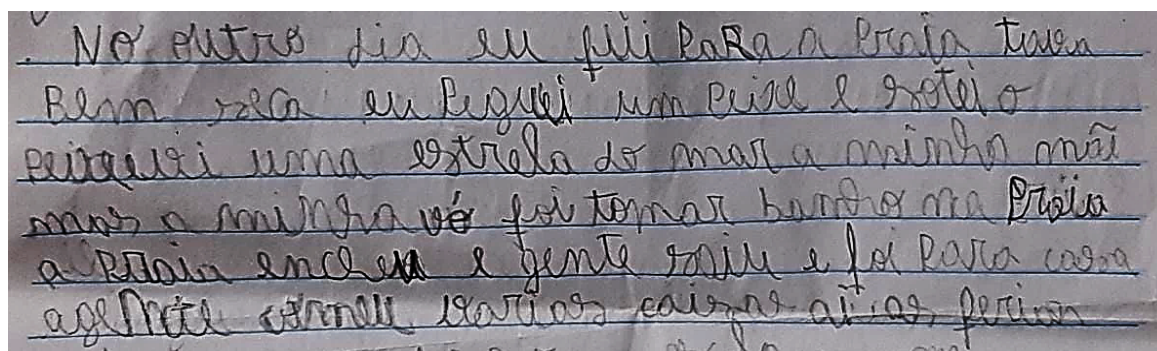 . No outro dia eu fui para a praia tava
Bem seca eu peguei um peixe e sotei o
peixe vi uma estrela do mar a minha mãi
mas a minha vó foi tomar banho na praia
a praia encheu e gente saiu e foi para casa
agente comeu varias coizas as ferias